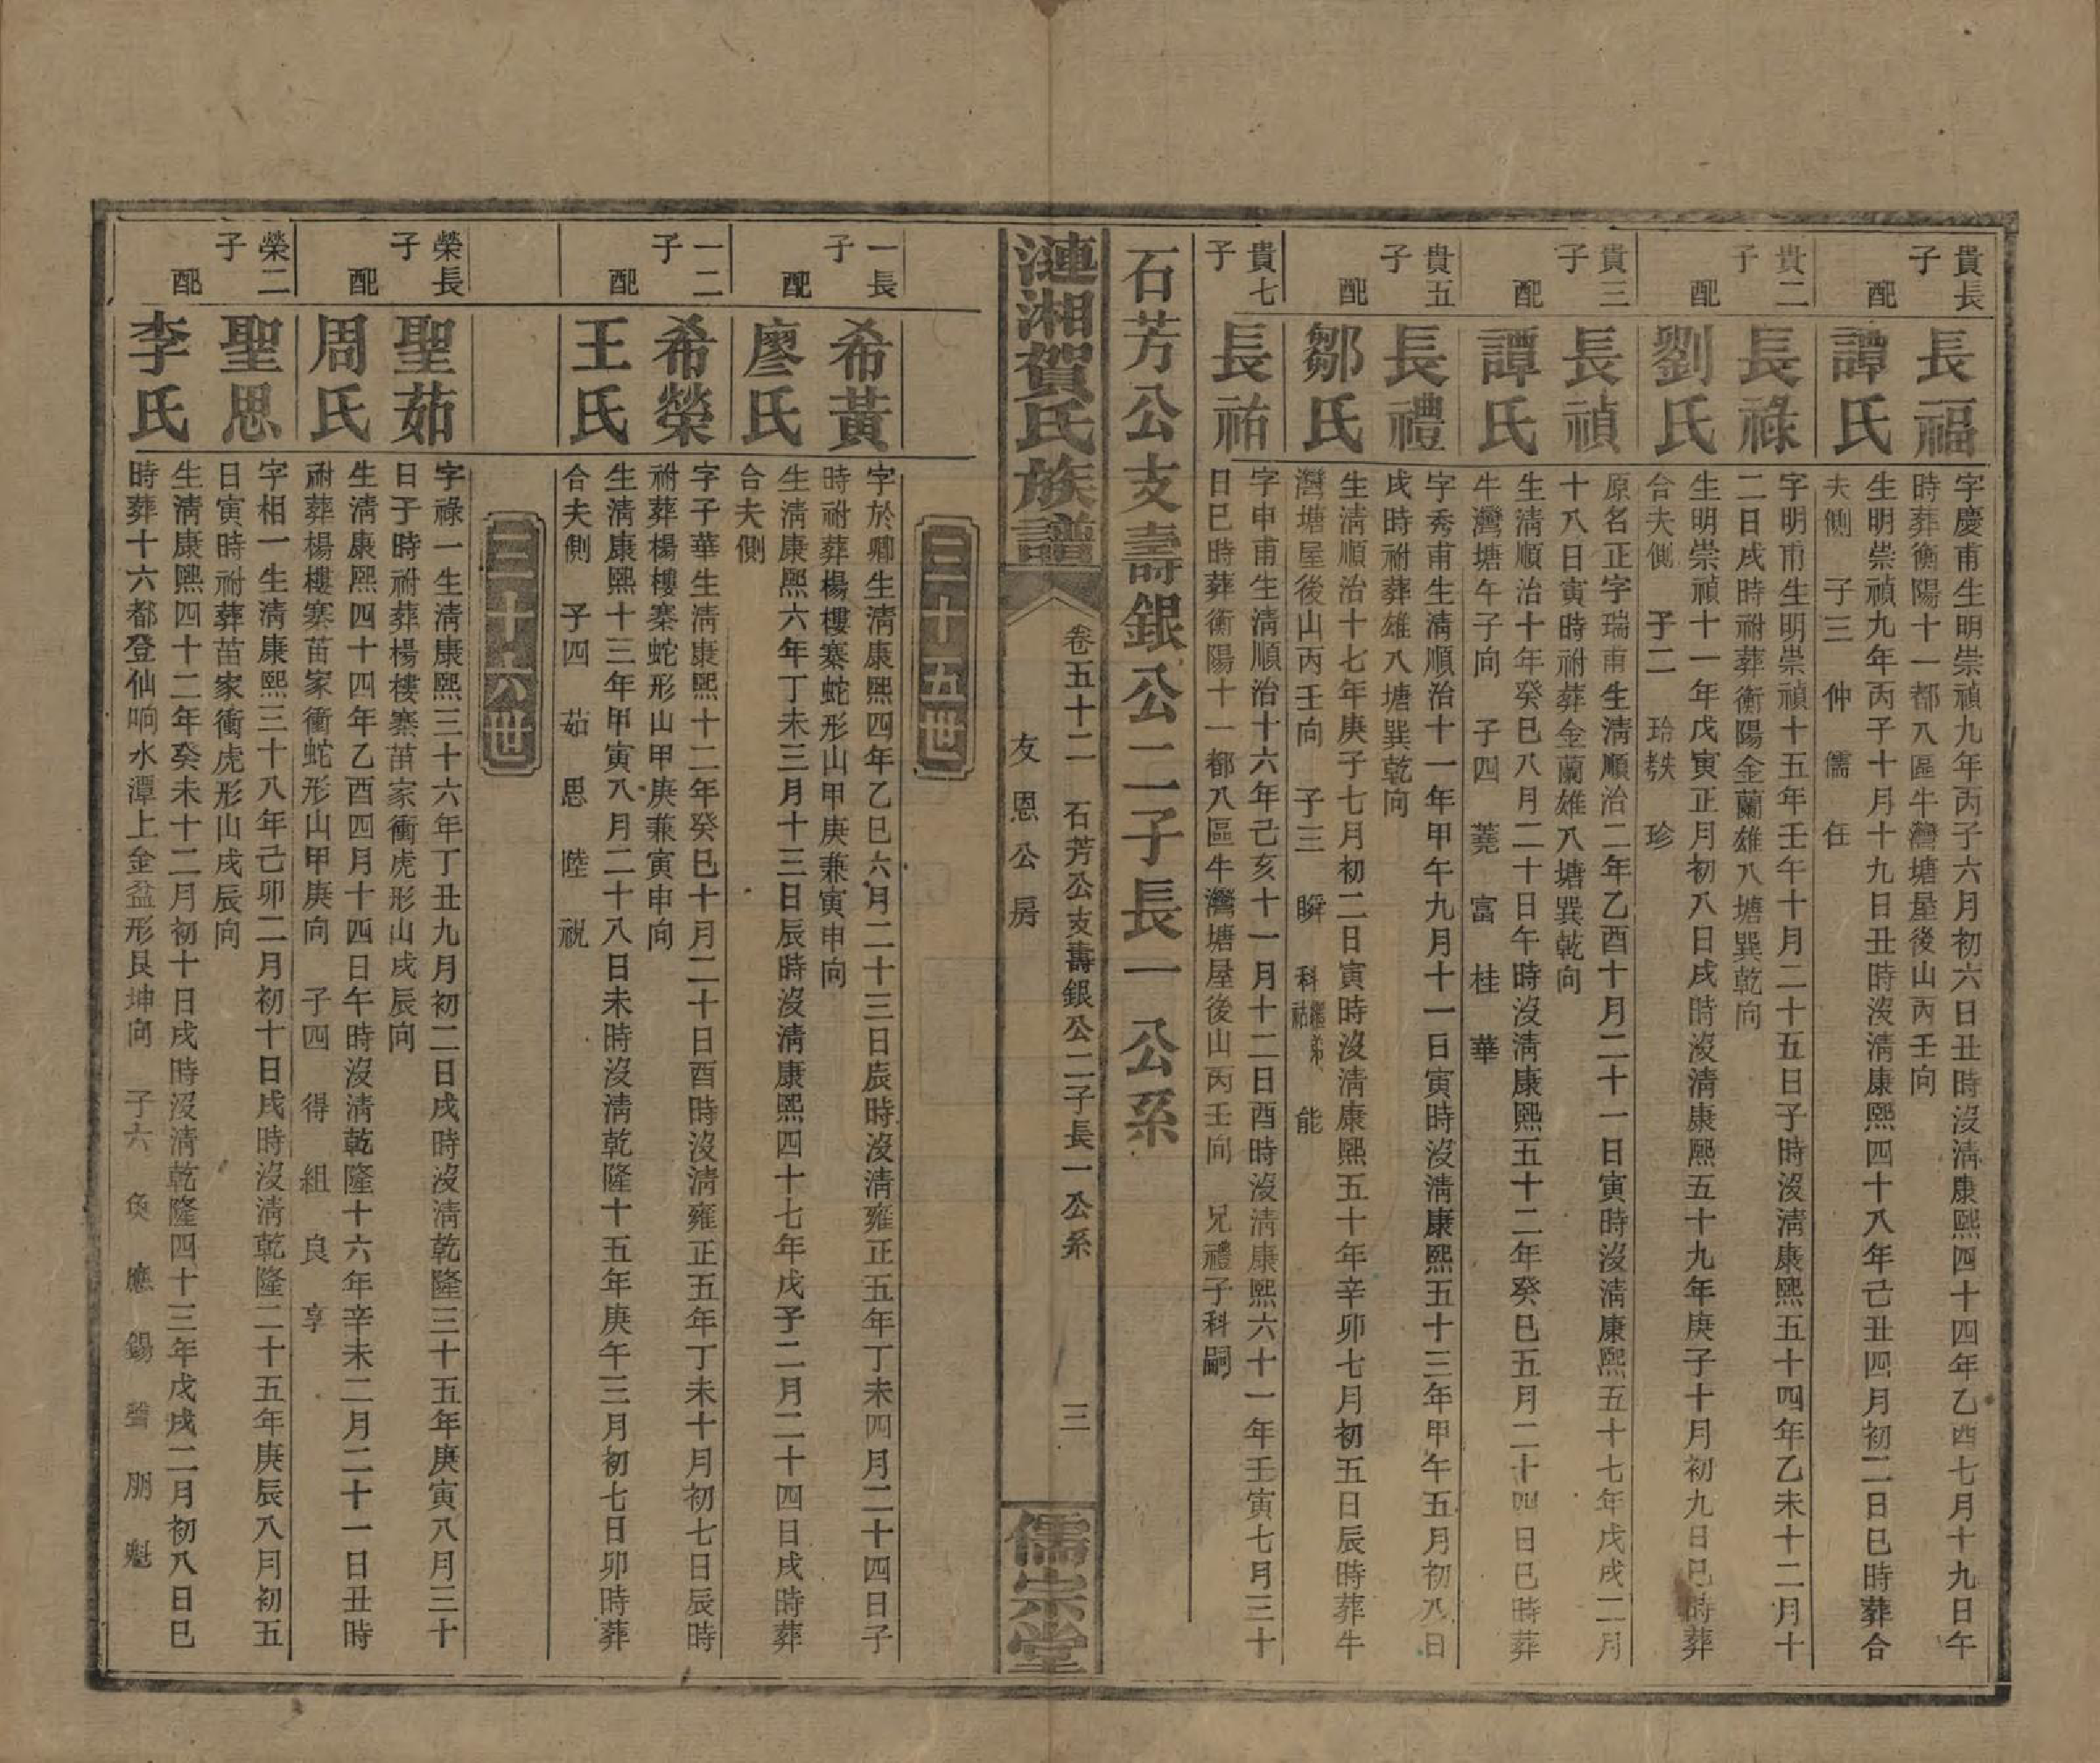 貴長子
長福
字慶甫生明崇禎九年丙子六月初六日丑時沒淸康熙四十四年乙酉七月十九日午
時葬衡陽十一都八區牛灣塘屋後山丙壬向
配
譚氏
生明崇禎九年丙子十月十九日丑時沒淸康熙四十八年己丑四月初二日巳時葬合
夫側 子三 仲 儒 任
貴二子
長祿
字明甫生明崇禎十五年壬午十月二十五日子時沒淸康熙五十四年乙未十二月十
二日戌時祔葬衡陽金蘭雄八塘巽乾向
配
劉氏
生明崇禎十一年戊寅正月初八日戌時沒淸康熙五十九年庚子十月初九日巳時葬
合夫側 子二 珍
貴三子
長禎
原名正字瑞甫生淸順治二年乙酉十月二十一日寅時沒淸康熙五十七年戊戌二月
十八日寅時祔葬金蘭雄八塘巽乾向
配
譚氏
生淸順治十年癸巳八月二十日午時沒淸康熙五十二年癸巳五月二十四日巳時葬
牛灣塘午子向 子四 蕘 富 桂 華
貴五子
長禮
字秀甫生淸順治十一年甲午九月十一日寅時沒淸康熙五十三年甲午五月初八日
戌時祔葬雄八塘巽乾向
配
鄒氏
生淸順治十七年庚子七月初二日寅時沒淸康熙五十年辛卯七月初五日辰時葬牛
灣塘屋後山丙壬向 子三 瞬 科繼弟祜 能
貴七子
長祐
字申甫生淸順治十六年己亥十一月十二日酉時沒淸康熙六十一年壬寅七月三十
日巳時葬衡陽十一都八區牛灣塘屋後山丙壬向 兄禮子科嗣
石芳公支壽銀公二子長一公系
漣湘賀氏族譜
卷五十二 石芳公支壽銀公二子長一公系
友恩公房
三
儒宗堂
三十五世
一長子
希黃
字於卿生淸康熙四年乙巳六月二十三日辰時沒淸雍正五年丁未四月二十四日子
時祔葬楊樓寨蛇形山甲庚兼寅申向
配
廖氏
生淸康熙六年丁未三月十三日辰時沒淸康熙四十七年戊子二月二十四日戌時葬
合夫側
一二子
希榮
字子華生淸康熙十二年癸巳十月二十日酉時沒淸雍正五年丁未十月初七日辰時
祔葬楊樓寨蛇形山甲庚兼寅申向
配
王氏
生淸康熙十三年甲寅八月二十八日未時沒淸乾隆十五年庚午三月初七日卯時葬
合夫側 子四 茹 思 陸 祝
三十六世
榮長子
聖茹
字祿一生淸康熙三十六年丁丑九月初二日戌時沒淸乾隆三十五年庚寅八月三十
日子時祔葬楊樓寨苗家衝虎形山戌辰向
配
周氏
生淸康熙四十四年乙酉四月十四日午時沒淸乾隆十六年辛未二月二十一日丑時
祔葬楊樓寨苗家衝蛇形山甲庚向 子四 得 組 良 享
榮二子
聖思
字相一生淸康熙三十八年己卯二月初十日戌時沒淸乾隆二十五年庚辰八月初五
日寅時祔葬苗家衝虎形山戌辰向
配
李氏
生淸康熙四十二年癸未十二月初十日戌時沒淸乾隆四十三年戊戌二月初八日巳
時葬十六都登仙响水潭上金盆形艮坤向 子六 奐 應 錫 朋 魁